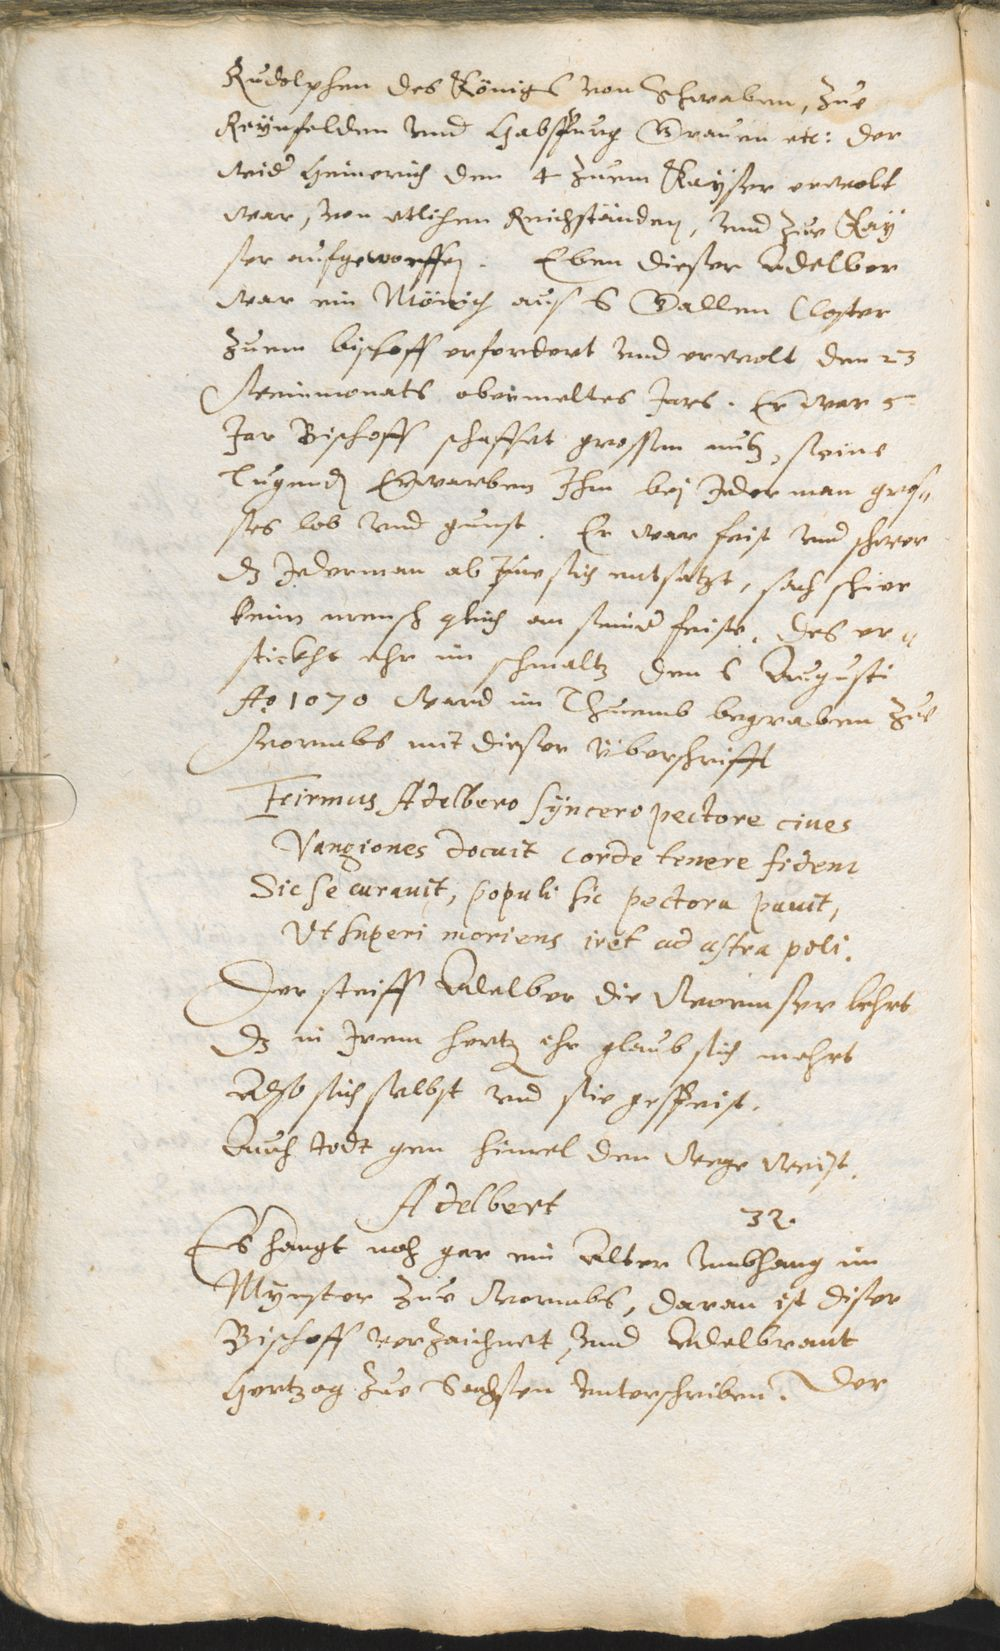 Rudolphen des Königs von Schwaben, zue
Reÿnfelden vnd Habspurg Grauen etc: der
wider Heinerich den 4 zuem Kaÿser erwolt
war, von etlichen Reichständen, vnd zue Kaÿ
ser aufgeworffen. Eben dieser Adelber
war ein Mönich aus S Gallen Closter
zuem bischoff erfordert vnd erwolt den 23
Weinmonats obermeltes Jars. Er war 5
Jar Bischoff schaffet grossen nutz, seine
Tugenden Erwarben Ihm bej Jederman gros„
ses lob vnd gunst. Er war feist vnd schwer
dz Jederman ab Ime sich entsatzt, sach schier
keim mensch glich an seiner feiste. des er„
stickht ehr im schmaltz den 6 Augusti
Ao 1070 Ward im Thuemb begraben zue
Wormbs mit dieser Überschrifft
Feirmus Adelbero sÿncero pectore ciues
Vangiones docuit corde tenere fidem
Sic se curauit, populi sic pectora pauit,
Vt superi moriens iret ad astra poli.
Der steiff Adelber die Wormser lehrt
dz in Jrem hertz ehr glaub sich mehrt
Also sich selbst vnd sie gespeist.
Auch todt gen himel den Wege Weist.
Adelbert 32.
Es hangt noch gar ein Alter vmbhang im
Mÿnster zue Wormbs, daran ist diser
Bischoff verzaichnet, vnd Adelbrant
Hertzog zue Sachsen vnterschriben. Der